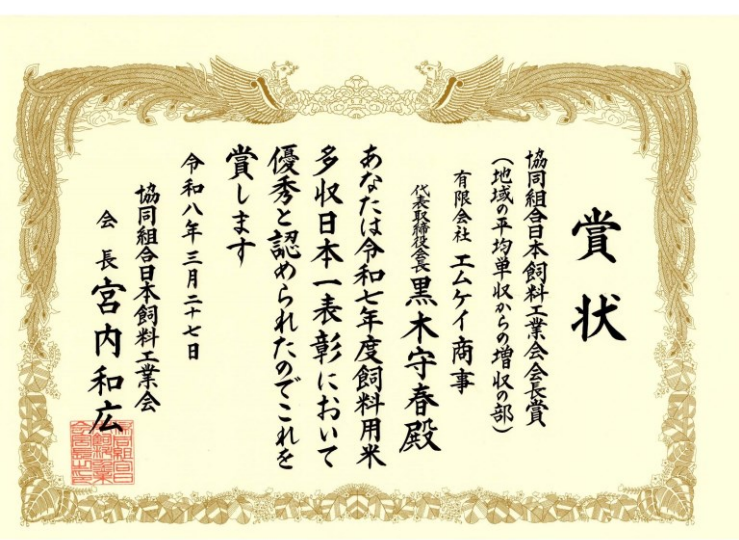 賞状
協同組合日本飼料工業会会長賞
(地域の平均単収からの増収の部)
有限会社 エムケイ商事
代表取締役会長 黒木守春殿
あなたは令和七年度飼料用米
多収日本一表彰において
優秀と認められたのでこれを
賞します
令和八年三月二十七日
協同組合日本飼料工業会
会長 宮内和広